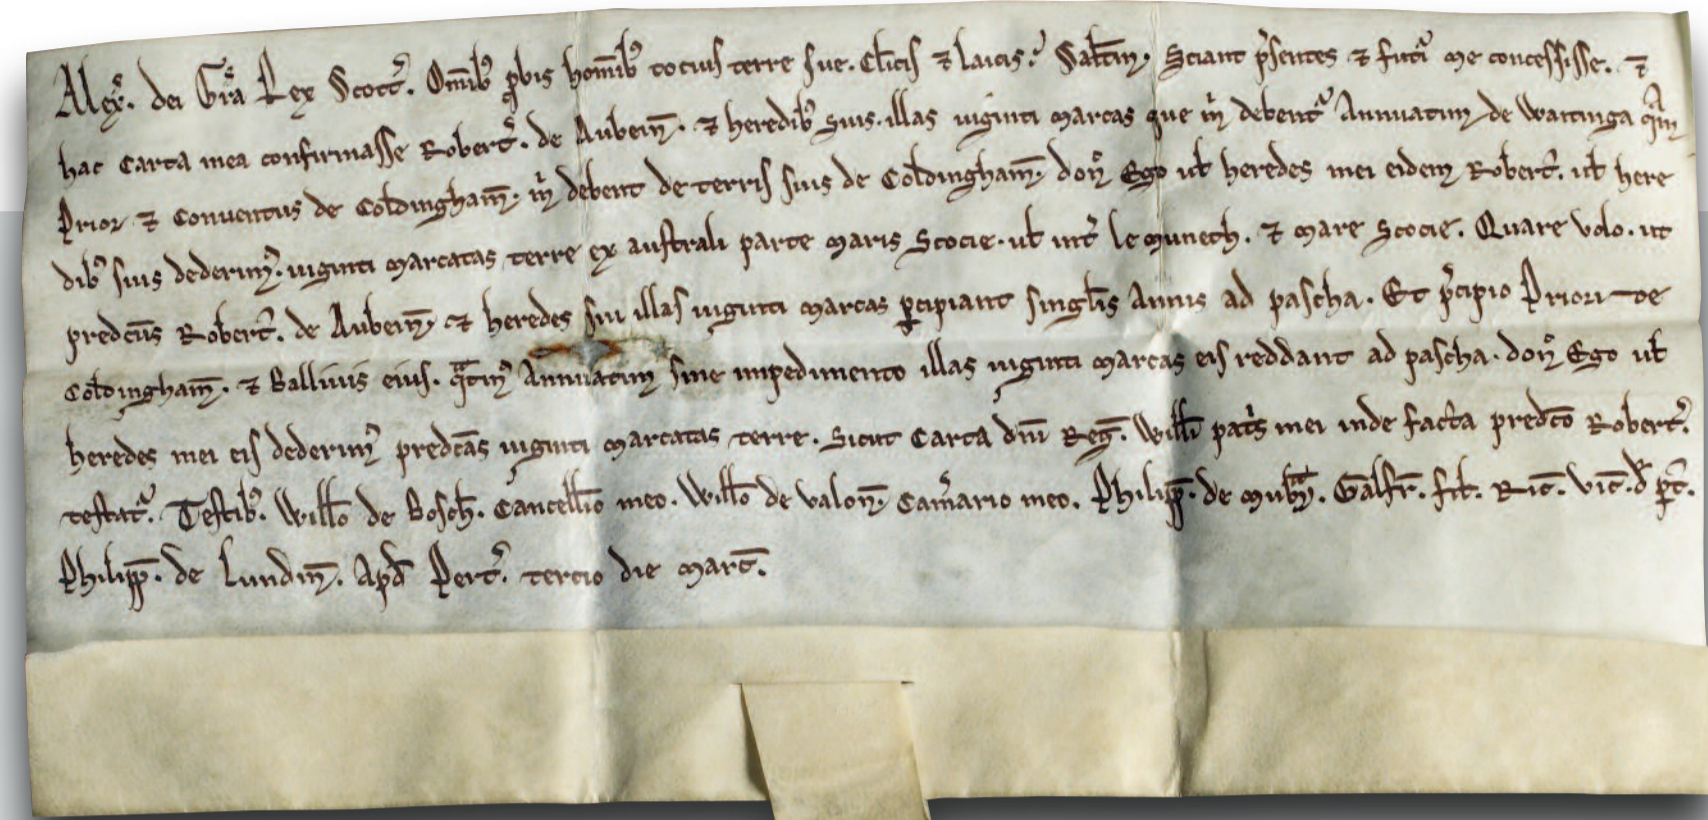 Alex̾. dei Gr̃a Rex Scott̾. Om̃ib; ꝓbis hom̃ib; tocius terre sue. Cl̃icis ⁊ laicis: Salt̃m. Sciant p̃sentes ⁊ fut̃i me concessisse. ⁊
hac Carta mea confirmasse Robert̾. de Aubein̄. ⁊ heredib; suis. illas uiginti marcas que m̃ debent᷑ Annuatim de Wartinga q̃m
Prior ⁊ Conuentus de Coldingham̄. m̃ debent de terris suis de Coldingham̄. don̾ Ego ul̃ heredes mei eidem Robert̾. ul̃ here
dib; suis dederim̾. uiginti marcatas terre ex australi parte maris Scocie. ul̃ int̾ le munech. ⁊ mare Scocie. Quare volo. ut
predc̃us Robert̾. de Aubein̄. ⁊ heredes sui illas uiginti marcas ꝑcipiant singl̃is Annis ad pascha. Et p̃cipio Priori de
Coldingham̄. ⁊ Balliuis eius. q̃tin̾ Annuatim sine impedimento illas uiginti marcas eis reddant ad pascha. don̾ Ego ul̃
heredes mei eis dederim̾ predc̃as uiginti marcatas terre. Sicut Carta dñi Reg̃. Willl̃i pat̾s mei inde facta predc̃o Robert̾.
testat᷑. Testib;. Will̃o de Bosch̃. Cancell̃io meo. Will̃o de Valon̄. Cam̾ario meo. Philipp̄. de Mub̾ᵃy. Galfr̃. fil̃. Ric̃. vic̃. de ꝑt̃.
Philipp̄. de Lundin̄. Apd̃ Pert̾. tercio die Marc̄.